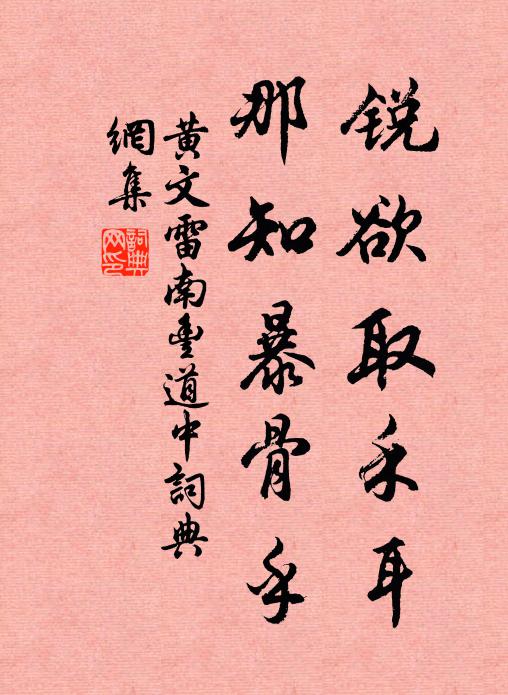 锐欲取禾耳
那知暴骨乎
黄文雷南豐道中詞典
網集
詞典
网印